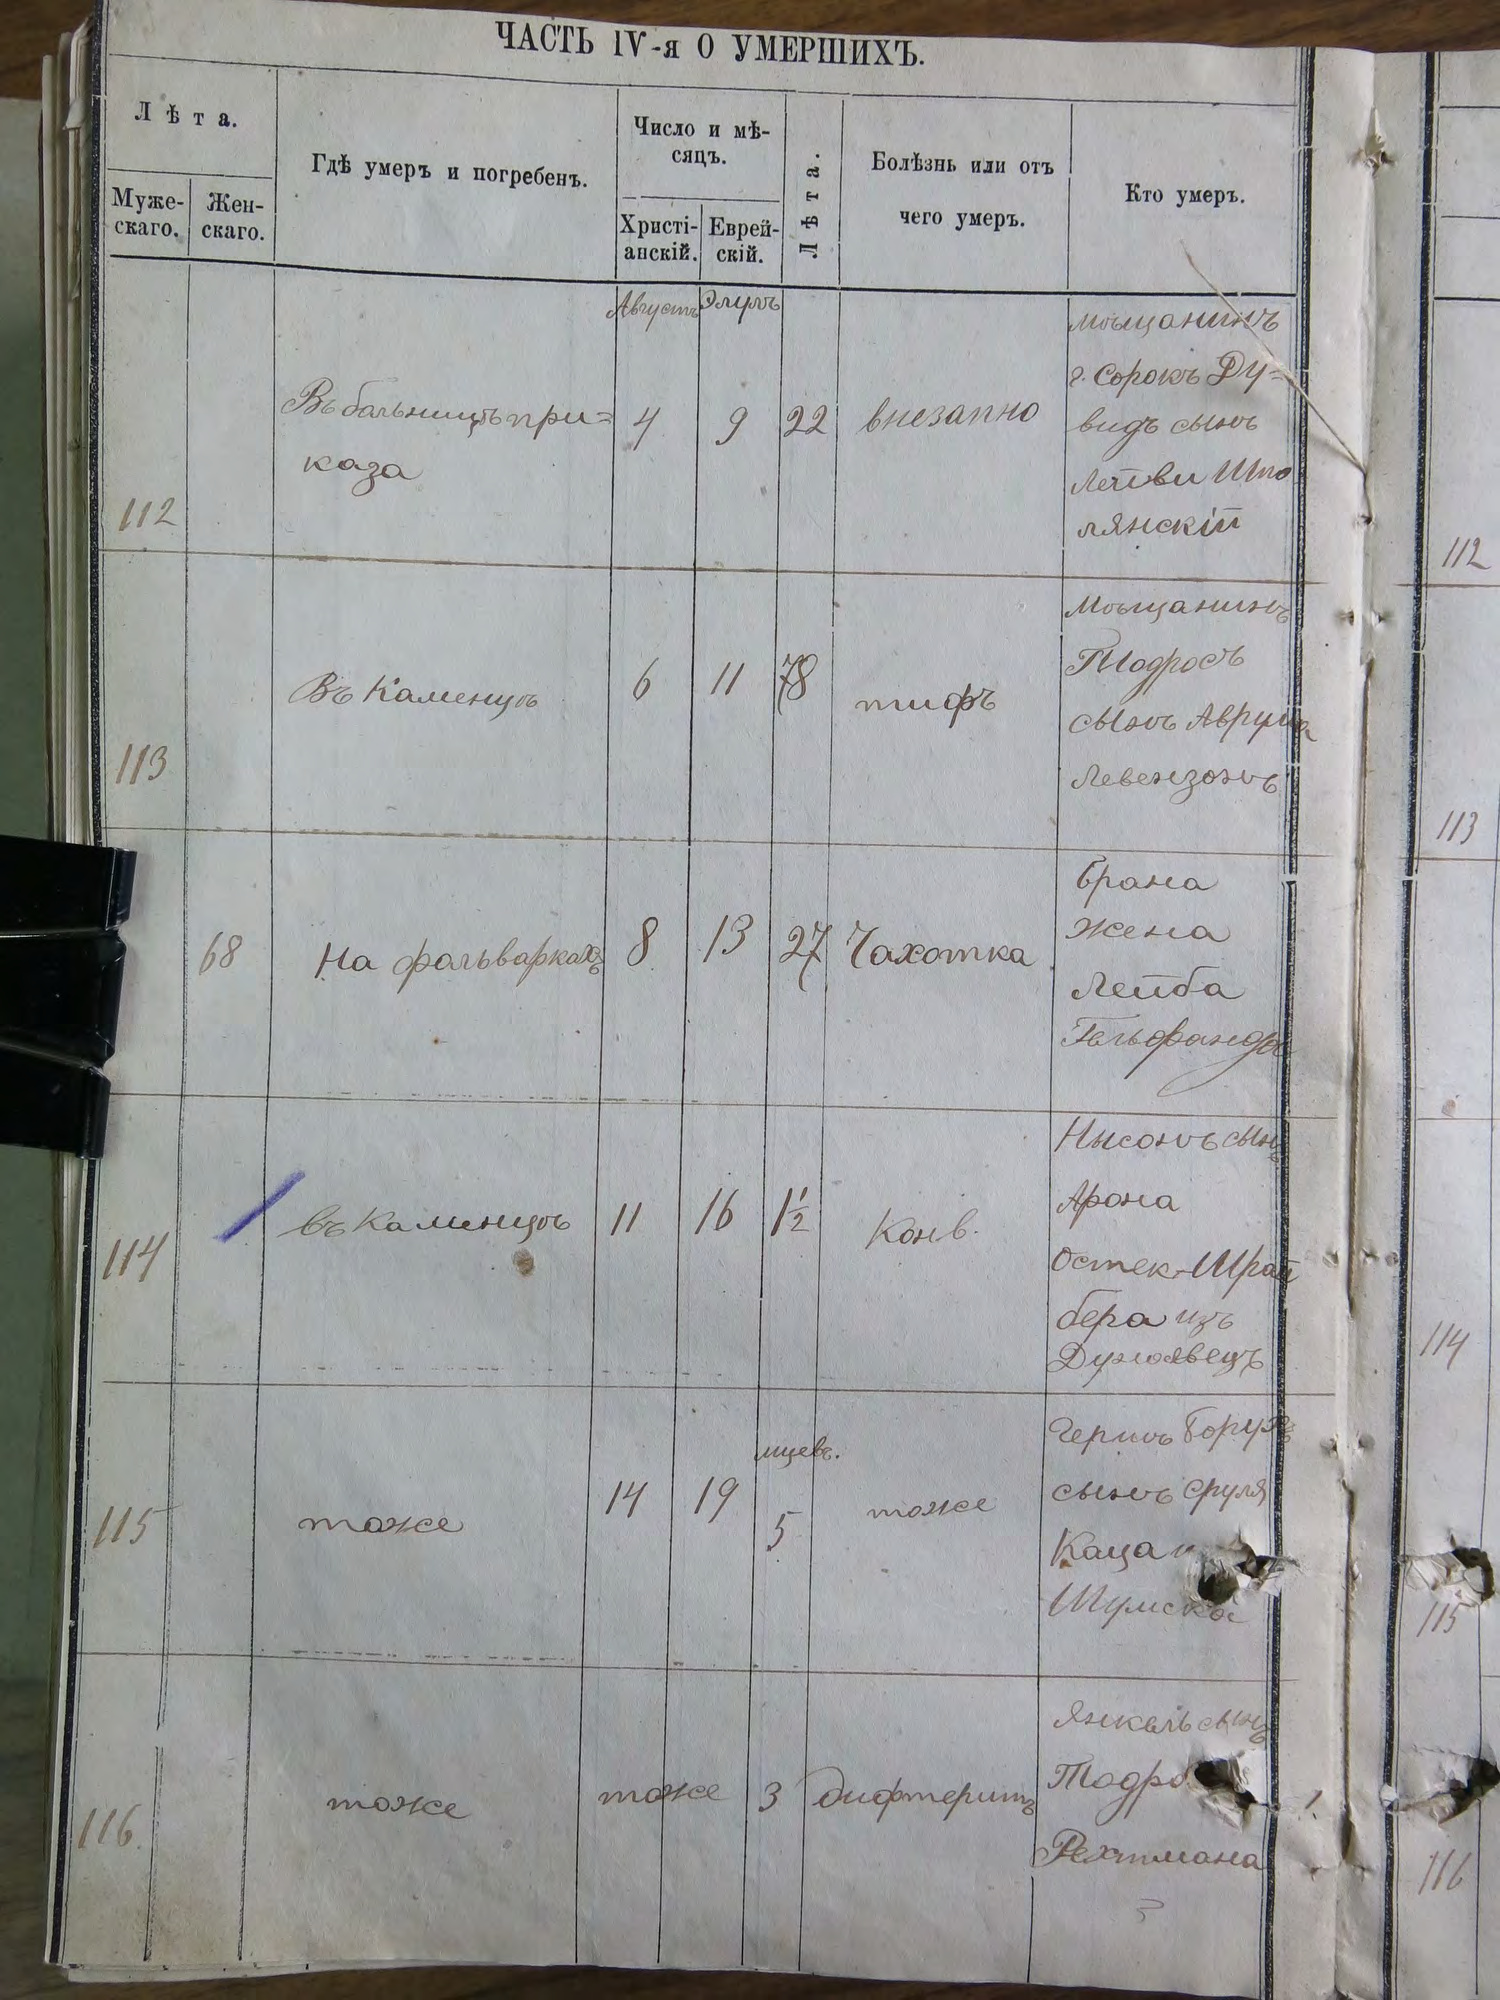 ЧАСТЬ IV-я О УМЕРШИХЪ.
Лѣта.
Муже-
скаго.
Жен-
скаго.
Гдѣ умеръ и погребенъ.
Число и мѣ-
сяцъ.
Христі-
анскій.
Еврей-
скій.
Лѣта.
Болѣзнь или отъ
чего умеръ.
Кто умеръ.
Августъ
Элулъ
112
Въ больницѣ при=
каза
4
9
22
внезапно
мѣщанинъ
г. Сорокъ Ду=
видъ сынъ
Лейви Шпо
лянскій
112
113
Въ Каменцѣ
6
11
78
тифъ
Мѣщанинъ
Тодросъ
сынъ Аврума
Левензонъ
113
68
На фольваркахъ
8
13
27
Чахотка
Брана
жена
Лейба
Гельфанда
114
въ Каменцѣ
11
16
1 1/2
Конв.
Нысонъ сынъ
Арона
Остек-Шрай
бера изъ
Дунаевецъ
114
115
тоже
14
19
мцевъ.
5
тоже
Гершъ Борухъ
сынъ Сруля
Каца
Шумска
115
116
тоже
тоже
3
дифтеритъ
Янкель сынъ
Тодро
Рехтмана
116